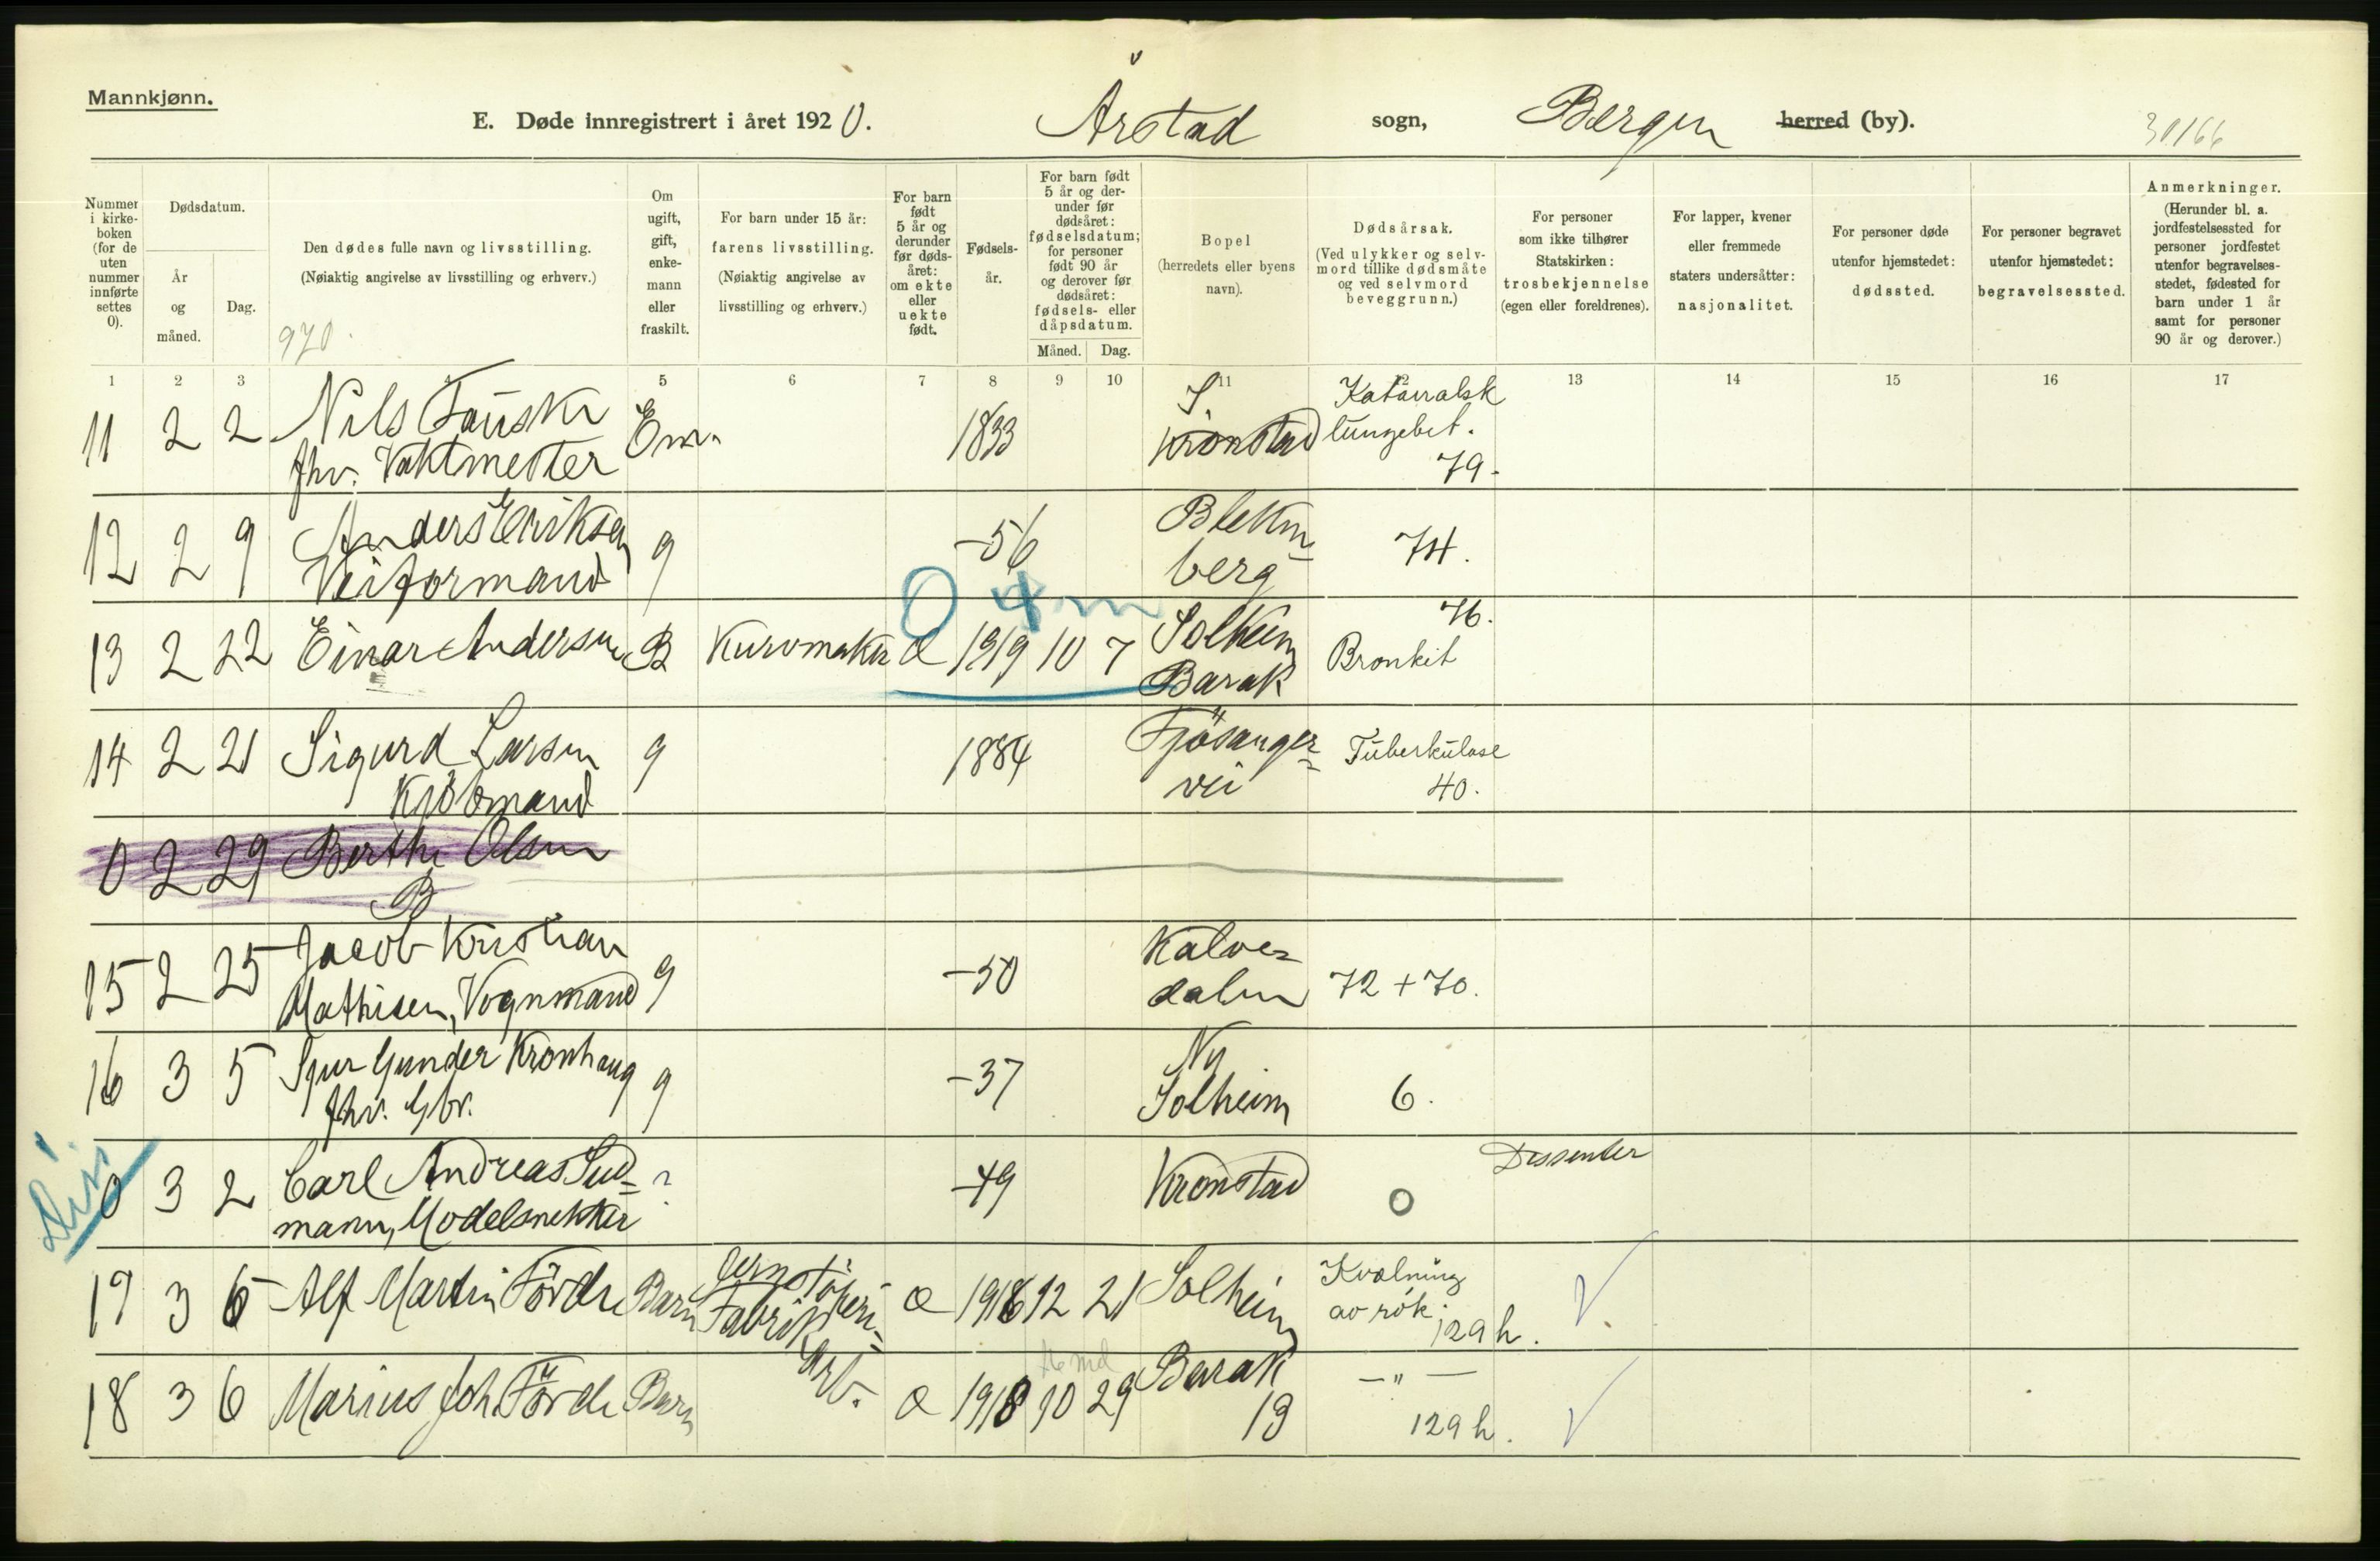 Mannkjønn.
E. Døde innregistrert i året 1920. Årstad sogn, Bergen herred (by). 30/66
Nummer i kirkeboken (for de uten nummer innførte settes 0).
Dødsdatum.
År og måned.
Dag.
Den dødes fulle navn og livsstilling.
(Nøiaktig angivelse av livsstilling og erhverv.)
970
Om ugift, gift, enkemann eller fraskilt.
For barn under 15 år: farens livsstilling.
(Nøiaktig angivelse av livsstilling og erhverv.)
For barn født 5 år og derunder før dødsåret: om ekte eller uekte født.
Fødselsår.
For barn født 5 år og derunder før dødsåret: fødselsdatum; for personer født 90 år og derover før dødsåret: fødsels- eller dåpsdatum.
Måned. Dag.
Bopel (herredets eller byens navn).
Dødsårsak.
(Ved ulykker og selvmord tillike dødsmåte og ved selvmord beveggrunn.)
For personer som ikke tilhører Statskirken: trosbekjennelse (egen eller foreldrenes).
For lapper, kvener eller fremmede staters undersåtter: nasjonalitet.
For personer døde utenfor hjemstedet: dødssted.
For personer begravet utenfor hjemstedet: begravelsessted.
Anmerkninger.
(Herunder bl. a. jordfestelsessted for personer jordfestet utenfor begravelsesstedet, fødested for barn under 1 år samt for personer 90 år og derover.)
1 2 3 4 5 6 7 8 9 10 11 12 13 14 15 16 17
11 2 2 Nils Fauske Em. 1833 S. Kronstad Katarralsk lungebet. 79.
fhv. Vaktmester
12 2 9 Anders Eriksen g -56 Blekenberg 74.
Veiformand
0 4 m
13 2 22 Einar Andersen B Kurvmaker e 1919 10 7 Solheim Barak 76. Bronkit
14 2 21 Sigurd Larsen g 1884 Fjösangervei Tuberkulose 40.
Kjöbmand
0 2 29 Berthe Olsen
B
15 2 25 Jacob Kristian g -50 Kalvedalen 72 + 70.
Mathisen, Vognmand
16 3 5 Sjur Gunder Kronhaug g -37 Ny Solheim 6.
fhv. Gbr.
Diss
0 3 2 Carl Andreas Sudmann, Modelsnekker ? -49 Kronstad 0 Dissenter
17 3 6 Alf Martin Förde Barn Jernstöberi Fabrikarb. e 1916 12 21 Solheim Kvælning av røk. 129 h.
18 3 6 Marius Joh. Förde Barn e 1918 10 29 Barak 13 -"- 129 h.